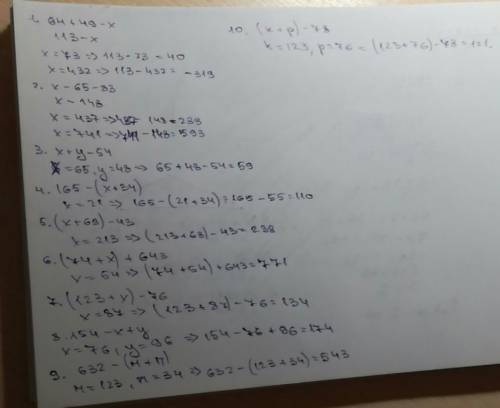 1. 94+49-x
113-x
x=73 => 113-73=40
x=432 => 113-432= -319
2. x-65-83
x-148
x=437 => 437 148=239
x=741 => 741-148=593
3. x+y-54
x=65, y=48 => 65+48-54=59
4. 165-(x+34)
x=21 => 165-(21+34)=165-55=110
5. (x+68)-43
x=213 => (213+68)-43=238
6. (74+x)+643
x=54 => (74+54)+643=771
7. (123+x)-76
x=87 => (123+87)-76=134
8. 154-x+y
x=76, y=96 => 154-76+96=174
9. 632-(м+п)
м=123, п=34 => 632-(123+34)=543
10. (x+p)-78
x=123, p=76=(123+76)-78=121.